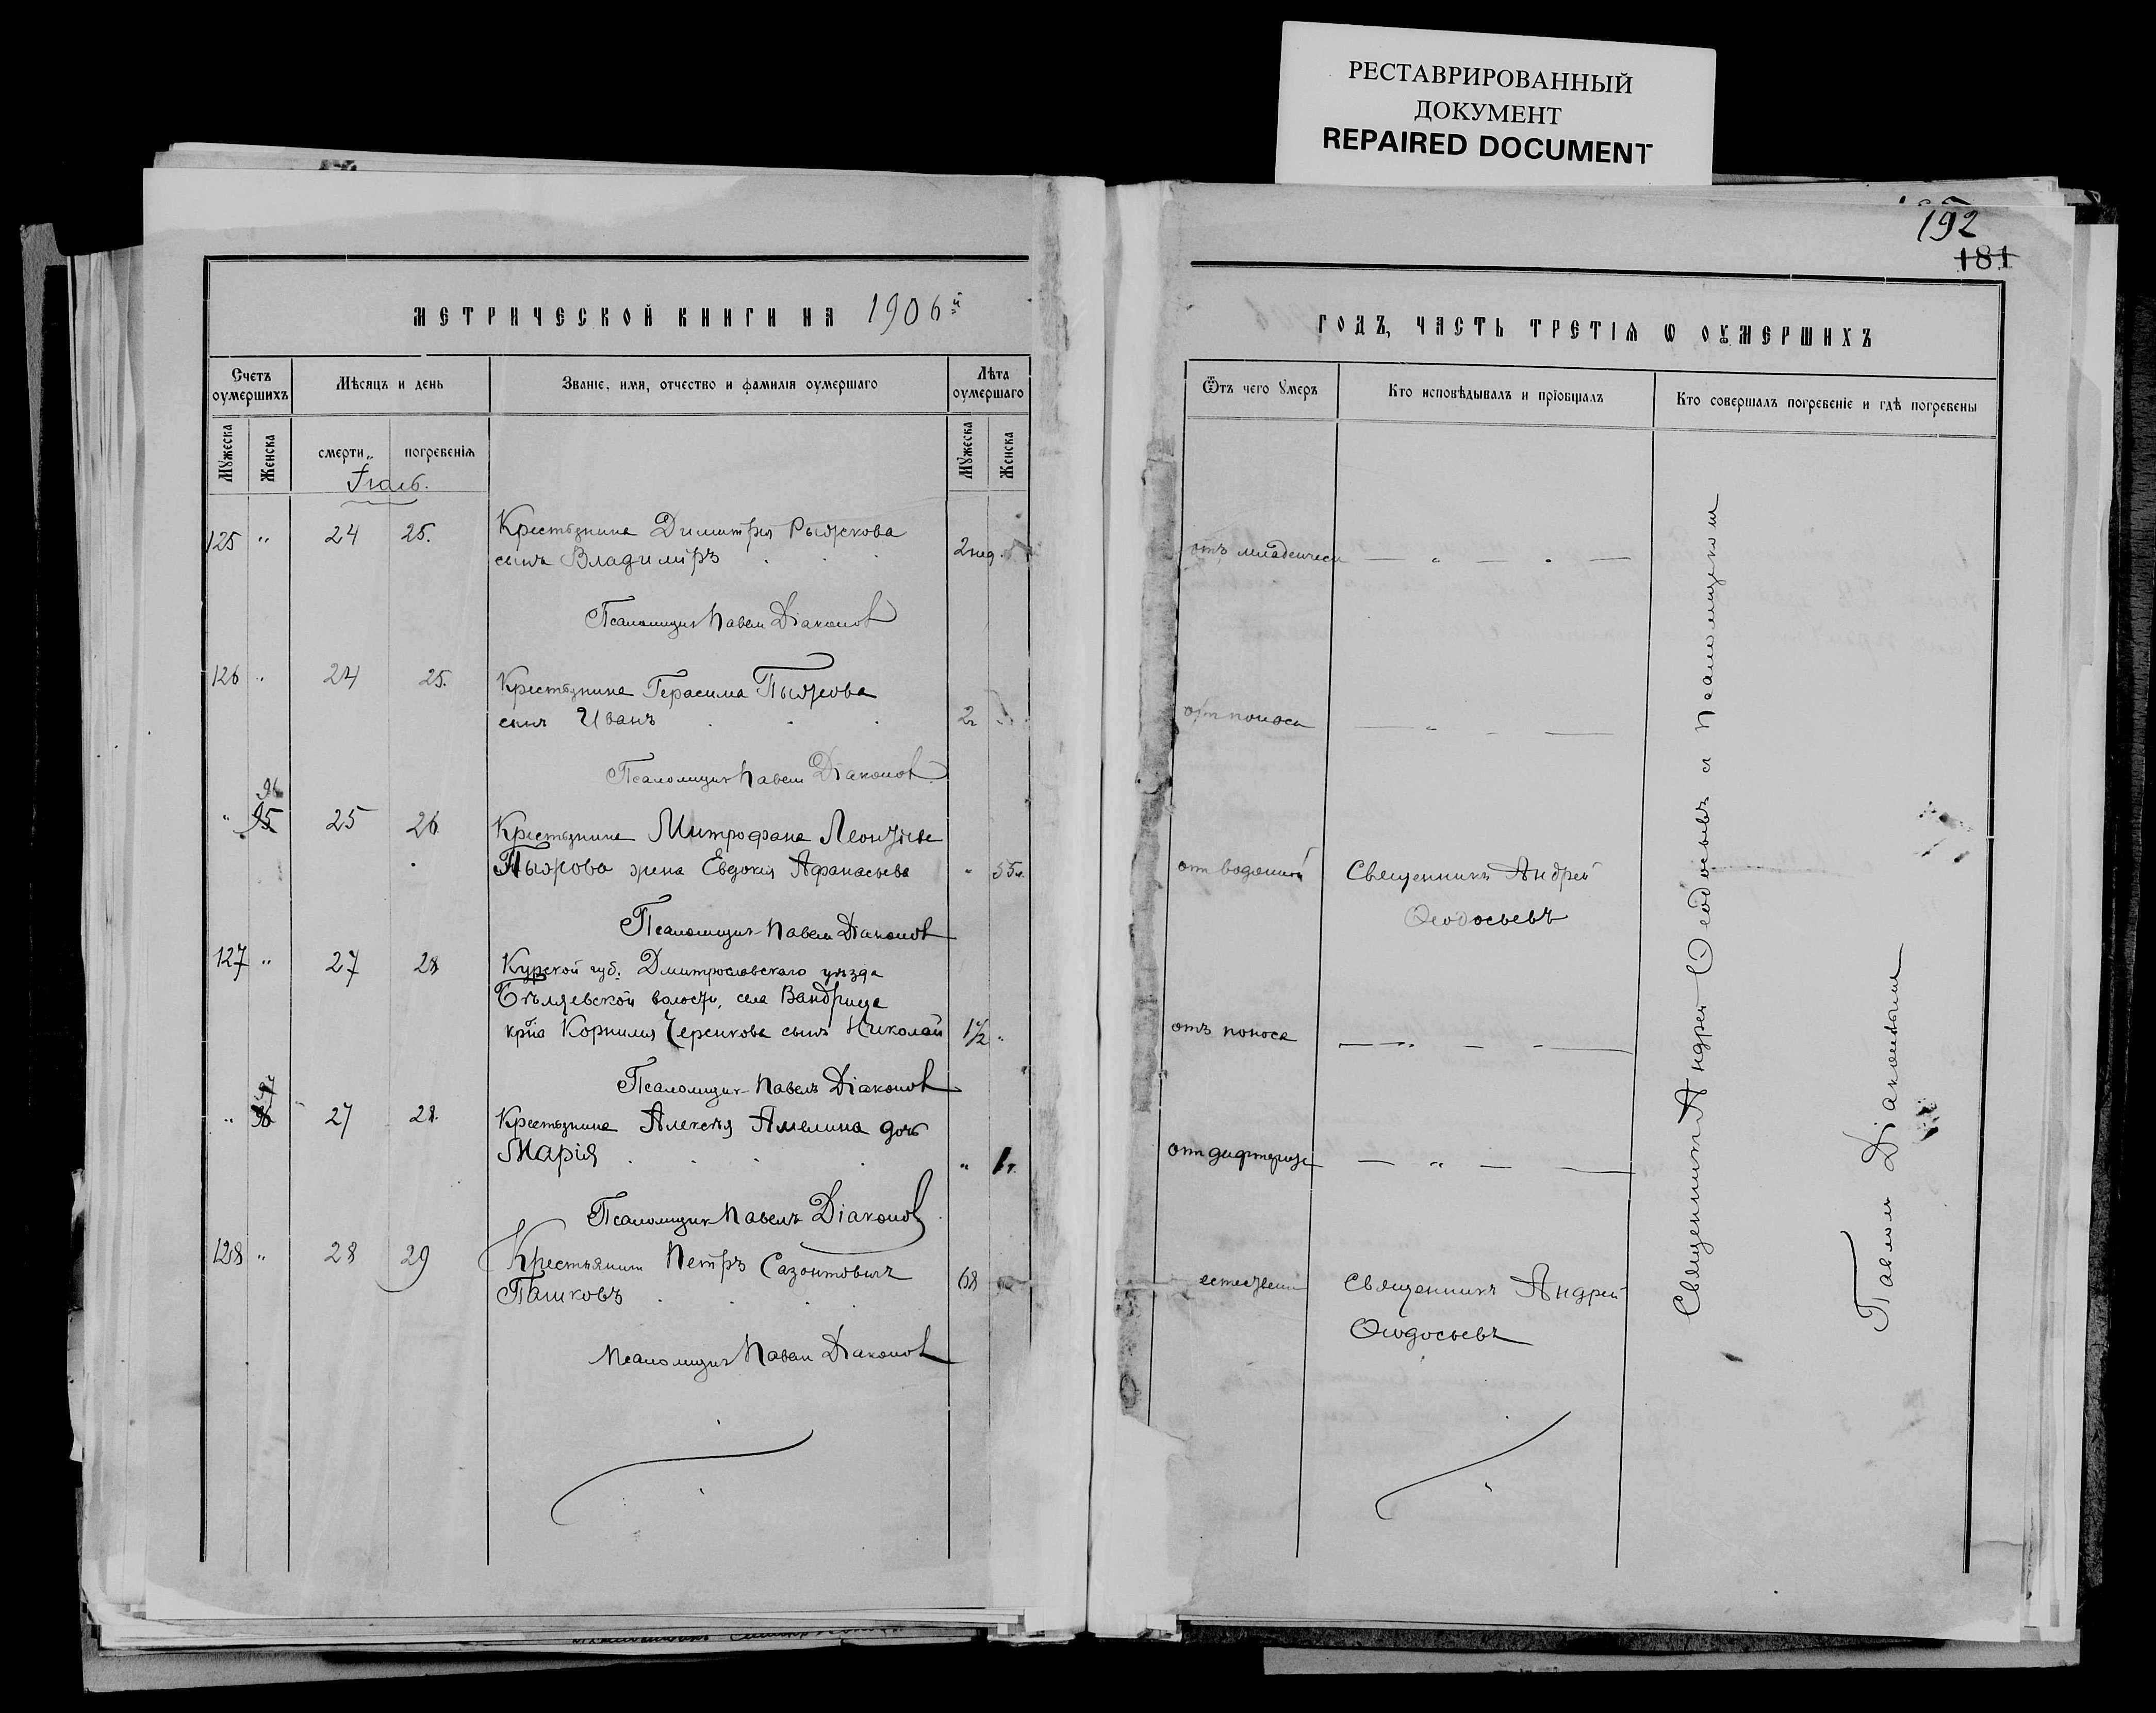 РЕСТАВРИРОВАННЫЙ
ДОКУМЕНТ
REPAIRED DOCUMENT
192
181
МЕТРИЧЕСКОЙ КНИГИ НА 1906й
ГОДЪ, ЧАСТЬ ТРЕТІЯ Ѡ ОУМЕРШИХЪ
Счетъ оумершихъ
Мѣсяцъ и день
Званіе, имя, отчество и фамилія оумершаго
Лѣта оумершаго
Ѿтъ чего умеръ
Кто исповѣдывалъ и пріобщалъ
Кто совершалъ погребеніе и гдѣ погребены
Мужеска Женска смерти погребенія Мужеска Женска
Іюль.
125 " 24 25. Крестьянина Димитрія Рыжкова
сынъ Владиміръ 2 нед. отъ младенческ — " — " —
Псаломщикъ Павелъ Діаконовъ
126 " 24 25. Крестьянина Герасима Пыжова
сынъ Иванъ 2г. отъ поноса — " — —
Псаломщикъ Павелъ Діаконовъ
96
" 95 25 26 Крестьянина Митрофана Леонтіева
Пыжова жена Евдокія Афанасьева " 55л. отъ водянной Священникъ Андрей
Ѳеодосьевъ
Псаломщикъ Павелъ Діаконовъ
127 " 27 28 Курской губ. Дмитрославскаго уѣзда
Бѣляевской волости, села
кр-на Корнилія сынъ Николай 1 1/2 " отъ поноса — " — " —
Псаломщикъ Павелъ Діаконовъ
97
" 96 27 28. Крестьянина Алексѣя Амелина дочь
Марія " 1г. отъ дифтерита — " — —
Псаломщикъ Павелъ Діаконовъ
128 " 28 29 Крестьянинъ Петръ Сазонтовичъ
Пашковъ 68 естествен Священникъ Андрей
Ѳеодосьевъ
Псаломщикъ Павелъ Діаконовъ
Священникъ Андрей Ѳеодосьевъ съ псаломщикомъ
Павломъ Діаконовымъ